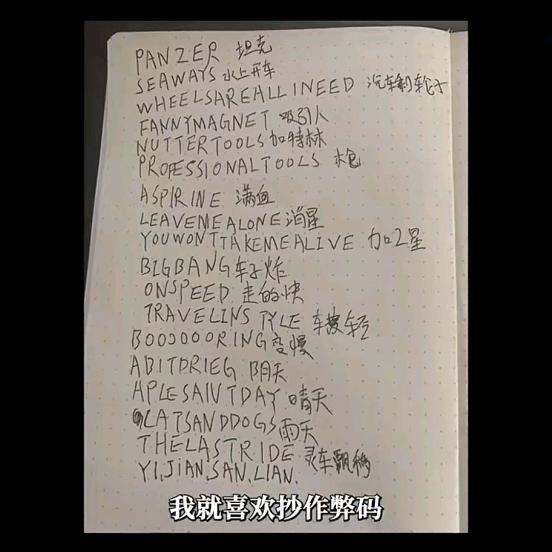 PANZER 坦克
SEAWAYS 水上开车
WHEELSAREALLINEED 汽车剩轮子
FANNYMAGNET 吸引人
NUTTERTOOLS 加特林
PROFESSIONALTOOLS 枪
ASPIRINE 满血
LEAVEMEALONE 消星
YOUWONTTAKEMEALIVE 加2星
BIGBANG 车子炸
ONSPEED 走的快
TRAVELINSTYLE 车变轻
BOOOOOORING 变慢
ABITDRIEG 阴天
APLESAIVTDAY 晴天
CATSANDDOGS 雨天
THELASTRIDE 灵车
YI,JIAN,SAN,LIAN.
我就喜欢抄作弊码